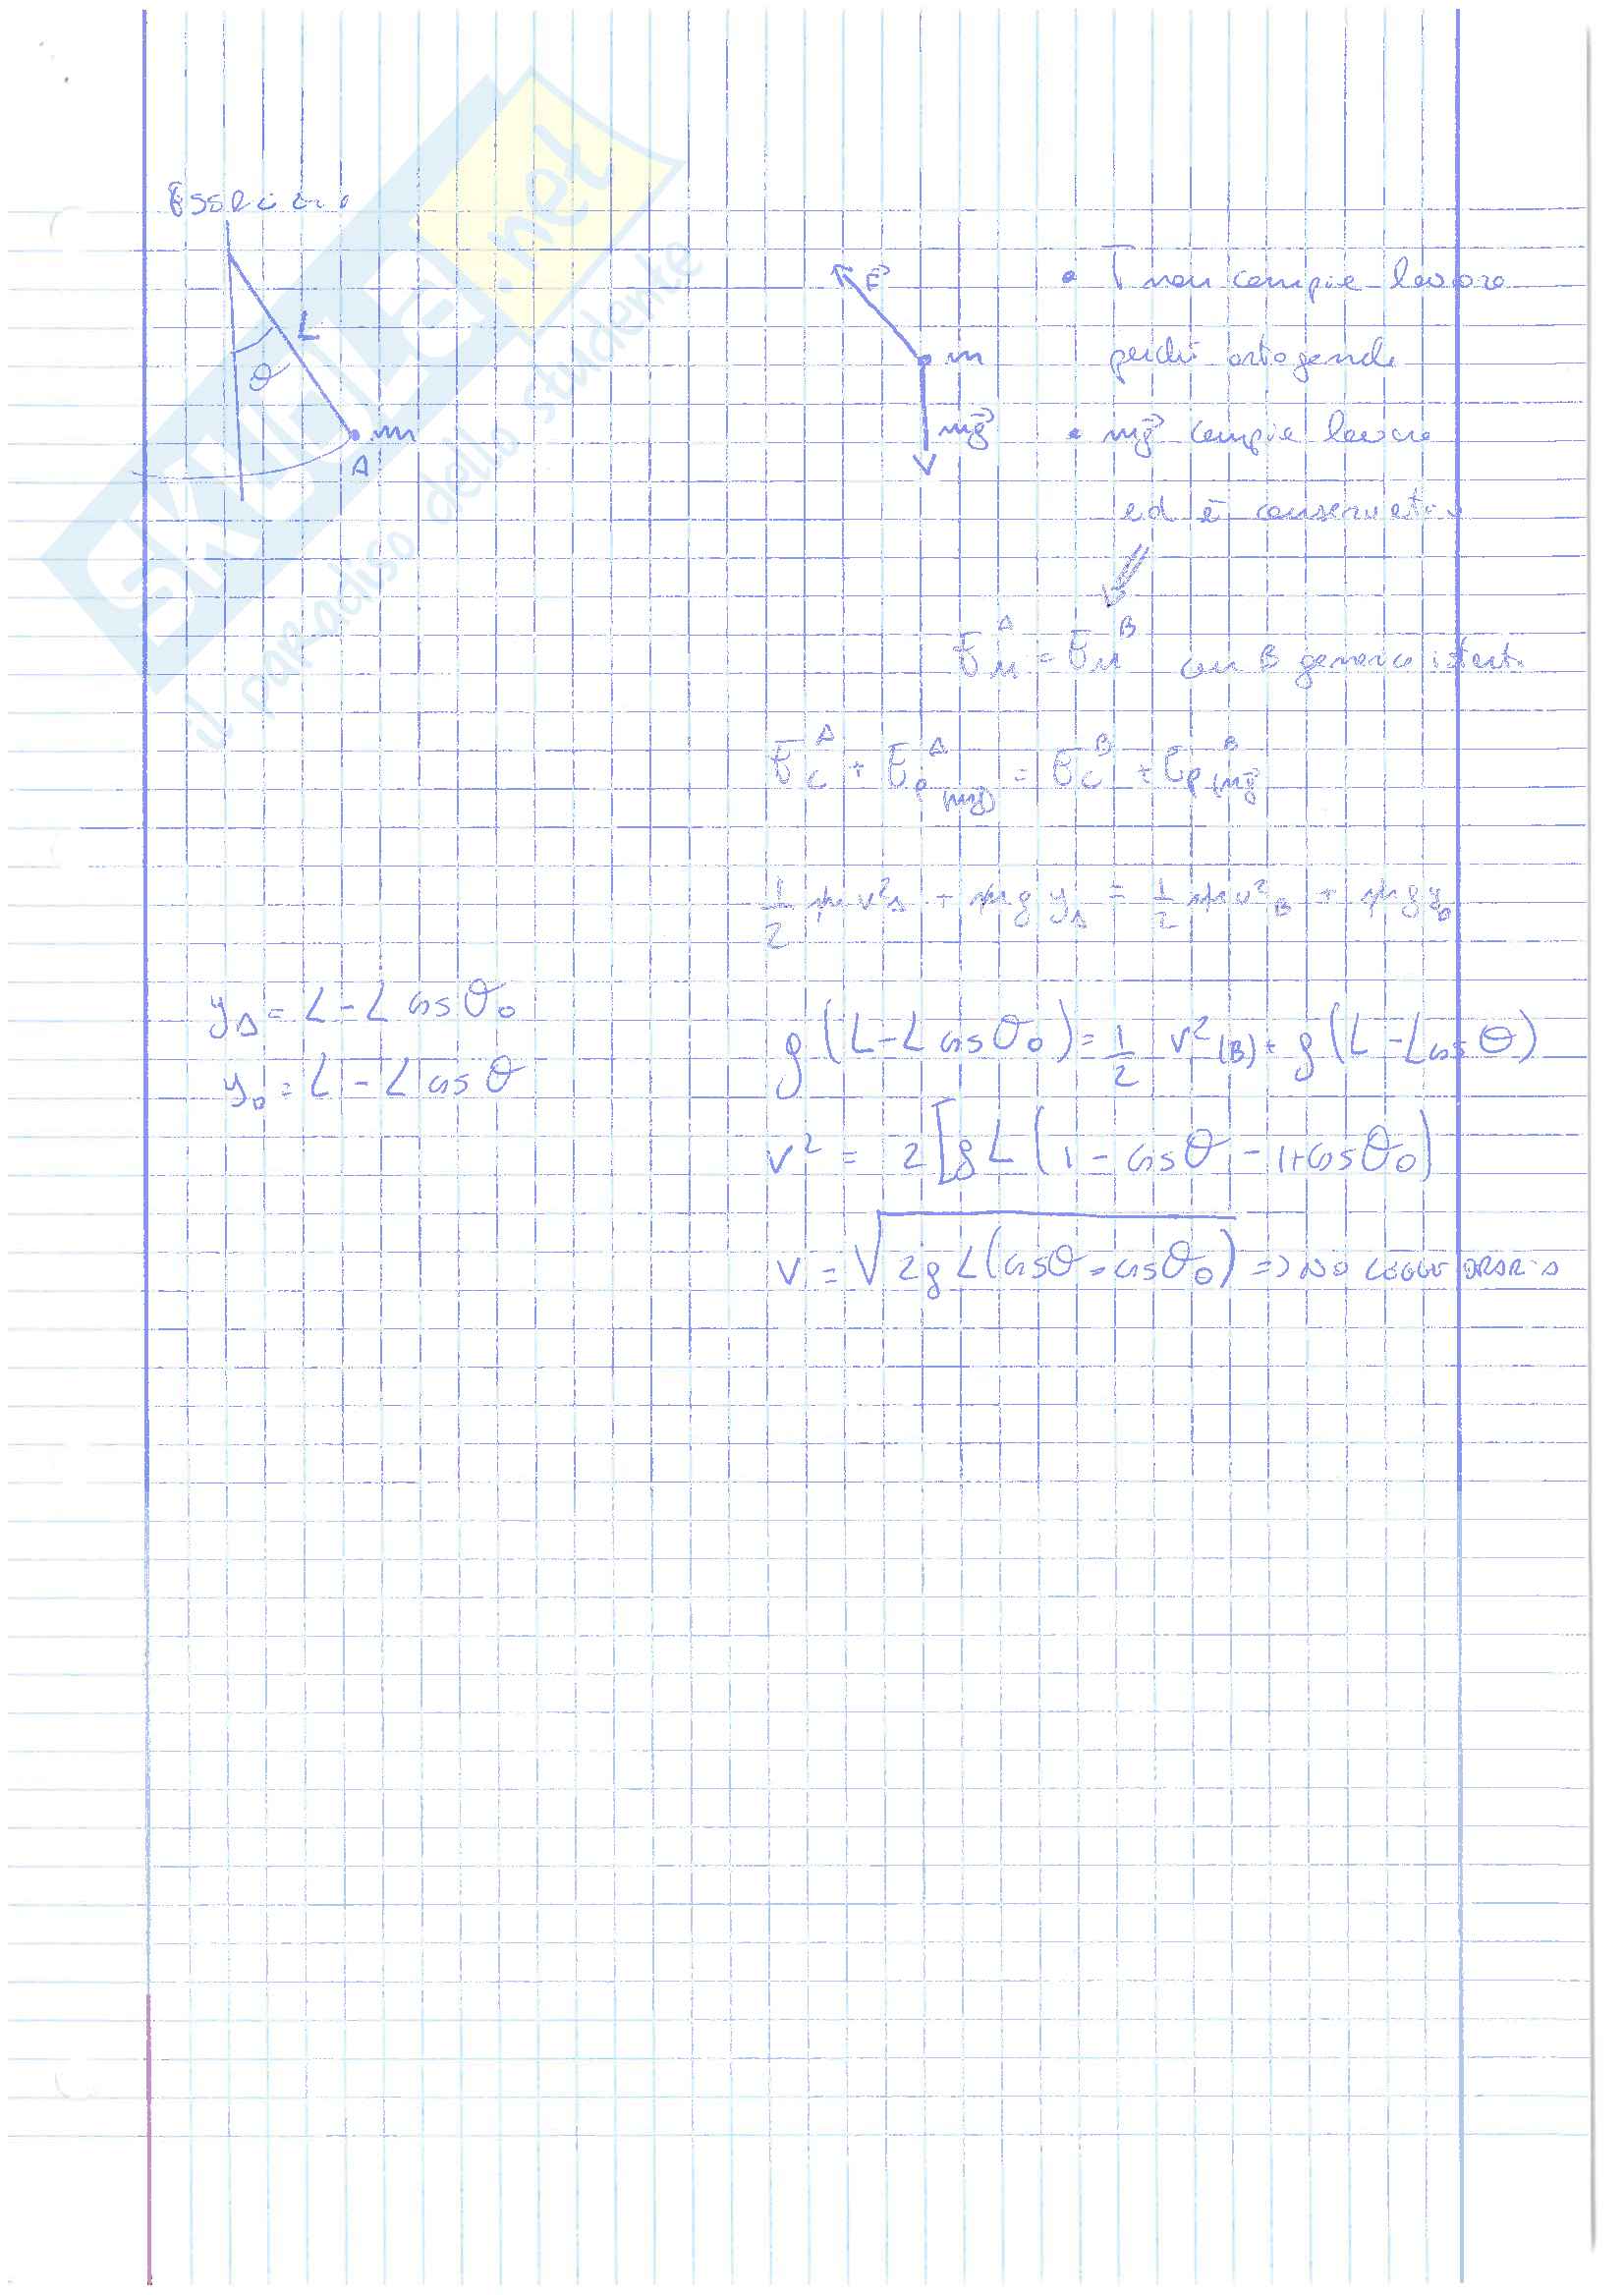 Esercizio
θ
L
m
A
F⃗
m
mg⃗
• T non compie lavoro
perché ortogonale
• mg⃗ compie lavoro
ed è conservativa
E_M^A = E_M^B con B generico istante
E_C^A + E_P(mg⃗)^A = E_C^B + E_P(mg⃗)^B
1/2 m v²_A + m g y_A = 1/2 m v²_B + m g y_B
y_A = L - L cos θ₀
y_B = L - L cos θ
g (L - L cos θ₀) = 1/2 v²(B) + g (L - L cos θ)
v² = 2 [g L (1 - cos θ - 1 + cos θ₀)
v = √(2 g L (cos θ - cos θ₀)) => NO LEGGE ORARIA
SKUOLA.net
il paradiso dello studente